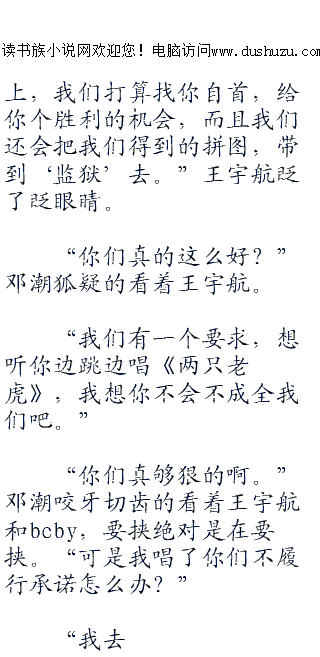 读书族小说网欢迎您！电脑访问www.dushuzu.com
上，我们打算找你自首，给
你个胜利的机会，而且我们
还会把我们得到的拼图，带
到‘监狱’去。”王宇航眨
了眨眼睛。
“你们真的这么好？”
邓潮狐疑的看着王宇航。
“我们有一个要求，想
听你边跳边唱《两只老
虎》，我想你不会不成全我
们吧。”
“你们真够狠的啊。”
邓潮咬牙切齿的看着王宇航
和bcby，要挟绝对是在要
挟。“可是我唱了你们不履
行承诺怎么办？”
“我去